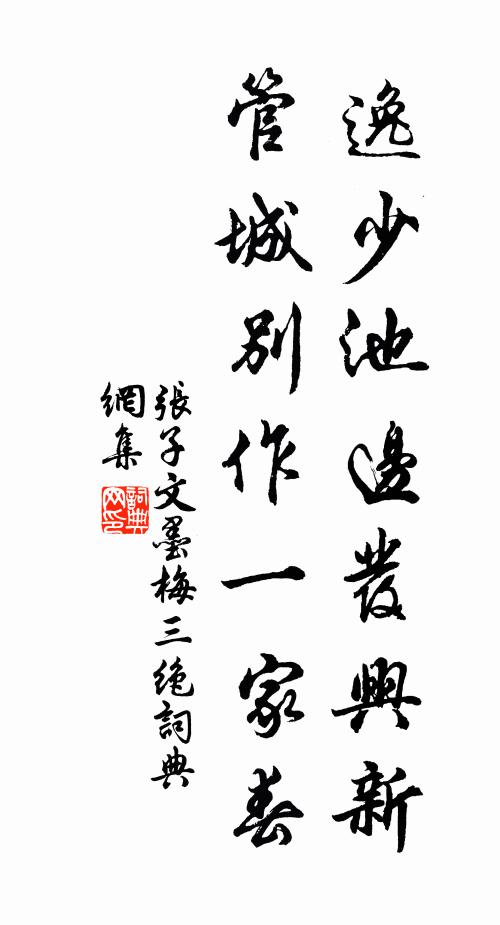 逸少池邊發興新
管城別作一家春
張子文墨梅三絶詞典
網集
詞典
网印